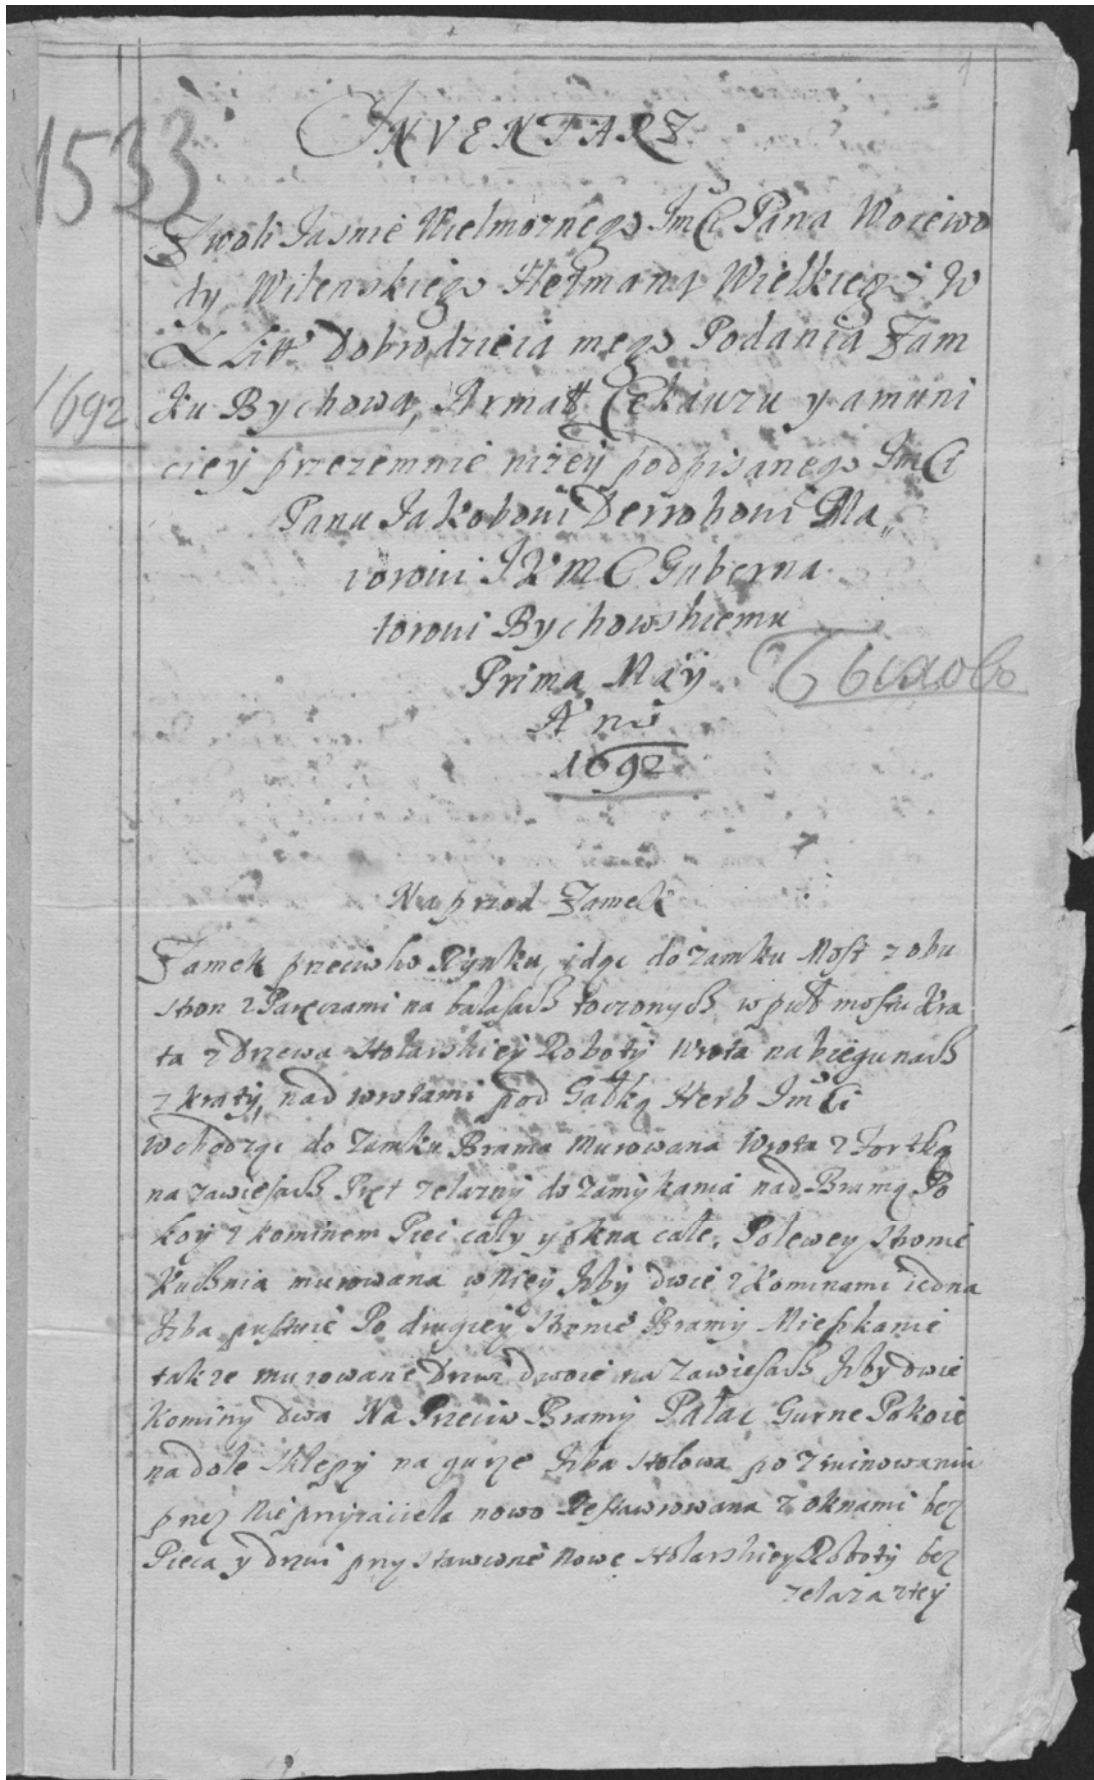 INVENTARZ
1533
Z woli Jasnie Wielmoznego Jmci Pana Woiewo
dy Wilenskiego Hetmana Wielkiego W
X Litt Dobrodzieia mego Podania Zam
1692
ku Bychowa, Armatt Cekauzu y amuni
ciey przezemnie nizey podpisanego Jmci
Panu Jakobowi Derrohowi Ma„
iorowi JKMC Guberna
torowi Bychowskiemu
Prima May
Быховъ
Ano
1692
Naprzod Zamek
Zamek przeciwko Rynku, idąc do zamku Most z obu
stron z Paręczami na balasach toczonych w puł mostu Kra
ta z Drzewa Stolarskiey Roboty Wrota na biegunach
z kraty, nad wrotami pod Gałką Herb Jmci
Wchodząc do Zamku Brama Murowana Wrota z Fortką
na zawiesach Pręt zelazny do zamykania nad Bramą Po
koy z kominem Piec cały y okna całe, Polewey stronie
Kuchnia murowana w niey Izby dwie z Kominami iedna
Izba pustwie Po drugiey stronie Bramy Mieszkanie
takze murowane Drzwi dwoie na zawiesach Izby dwie
Kominy dwa Na Przeciw Bramy Pałac Gurne Pokoie
na dole Sklepy na gurze Izba stołowa po zruinowaniu
przez Nieprzyiaciela nowo Restawrowana z oknami bez
Pieca y drzwi przystawione Nowe stolarskiey Roboty bez
zelaza z tey